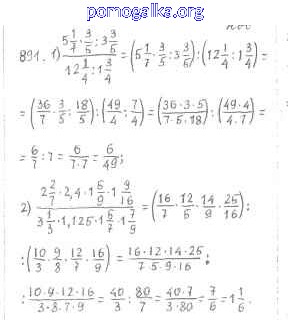 pomogalka.org
891. 1) (5 1/7 · 3/5 : 3 3/5) / (12 1/4 : 1 3/4) = (5 1/7 · 3/5 : 3 3/5) : (12 1/4 : 1 3/4) =
= (36/7 · 3/5 : 18/5) : (49/4 : 7/4) = (36·3·5 / 7·5·18) : (49·4 / 4·7) =
= 6/7 : 7 = 6/7·7 = 6/49;
2) (2 2/7 · 2,4 · 1 5/9 · 1 9/16) / (3 1/3 · 1,125 · 1 5/7 · 1 7/9) = (16/7 · 12/5 · 14/9 · 25/16) :
: (10/3 · 9/8 · 12/7 · 16/9) = 16·12·14·25 / 7·5·9·16 ;
: 10·9·12·16 / 3·8·7·9 = 40/3 : 80/7 = 40·7 / 3·80 = 7/6 = 1 1/6.